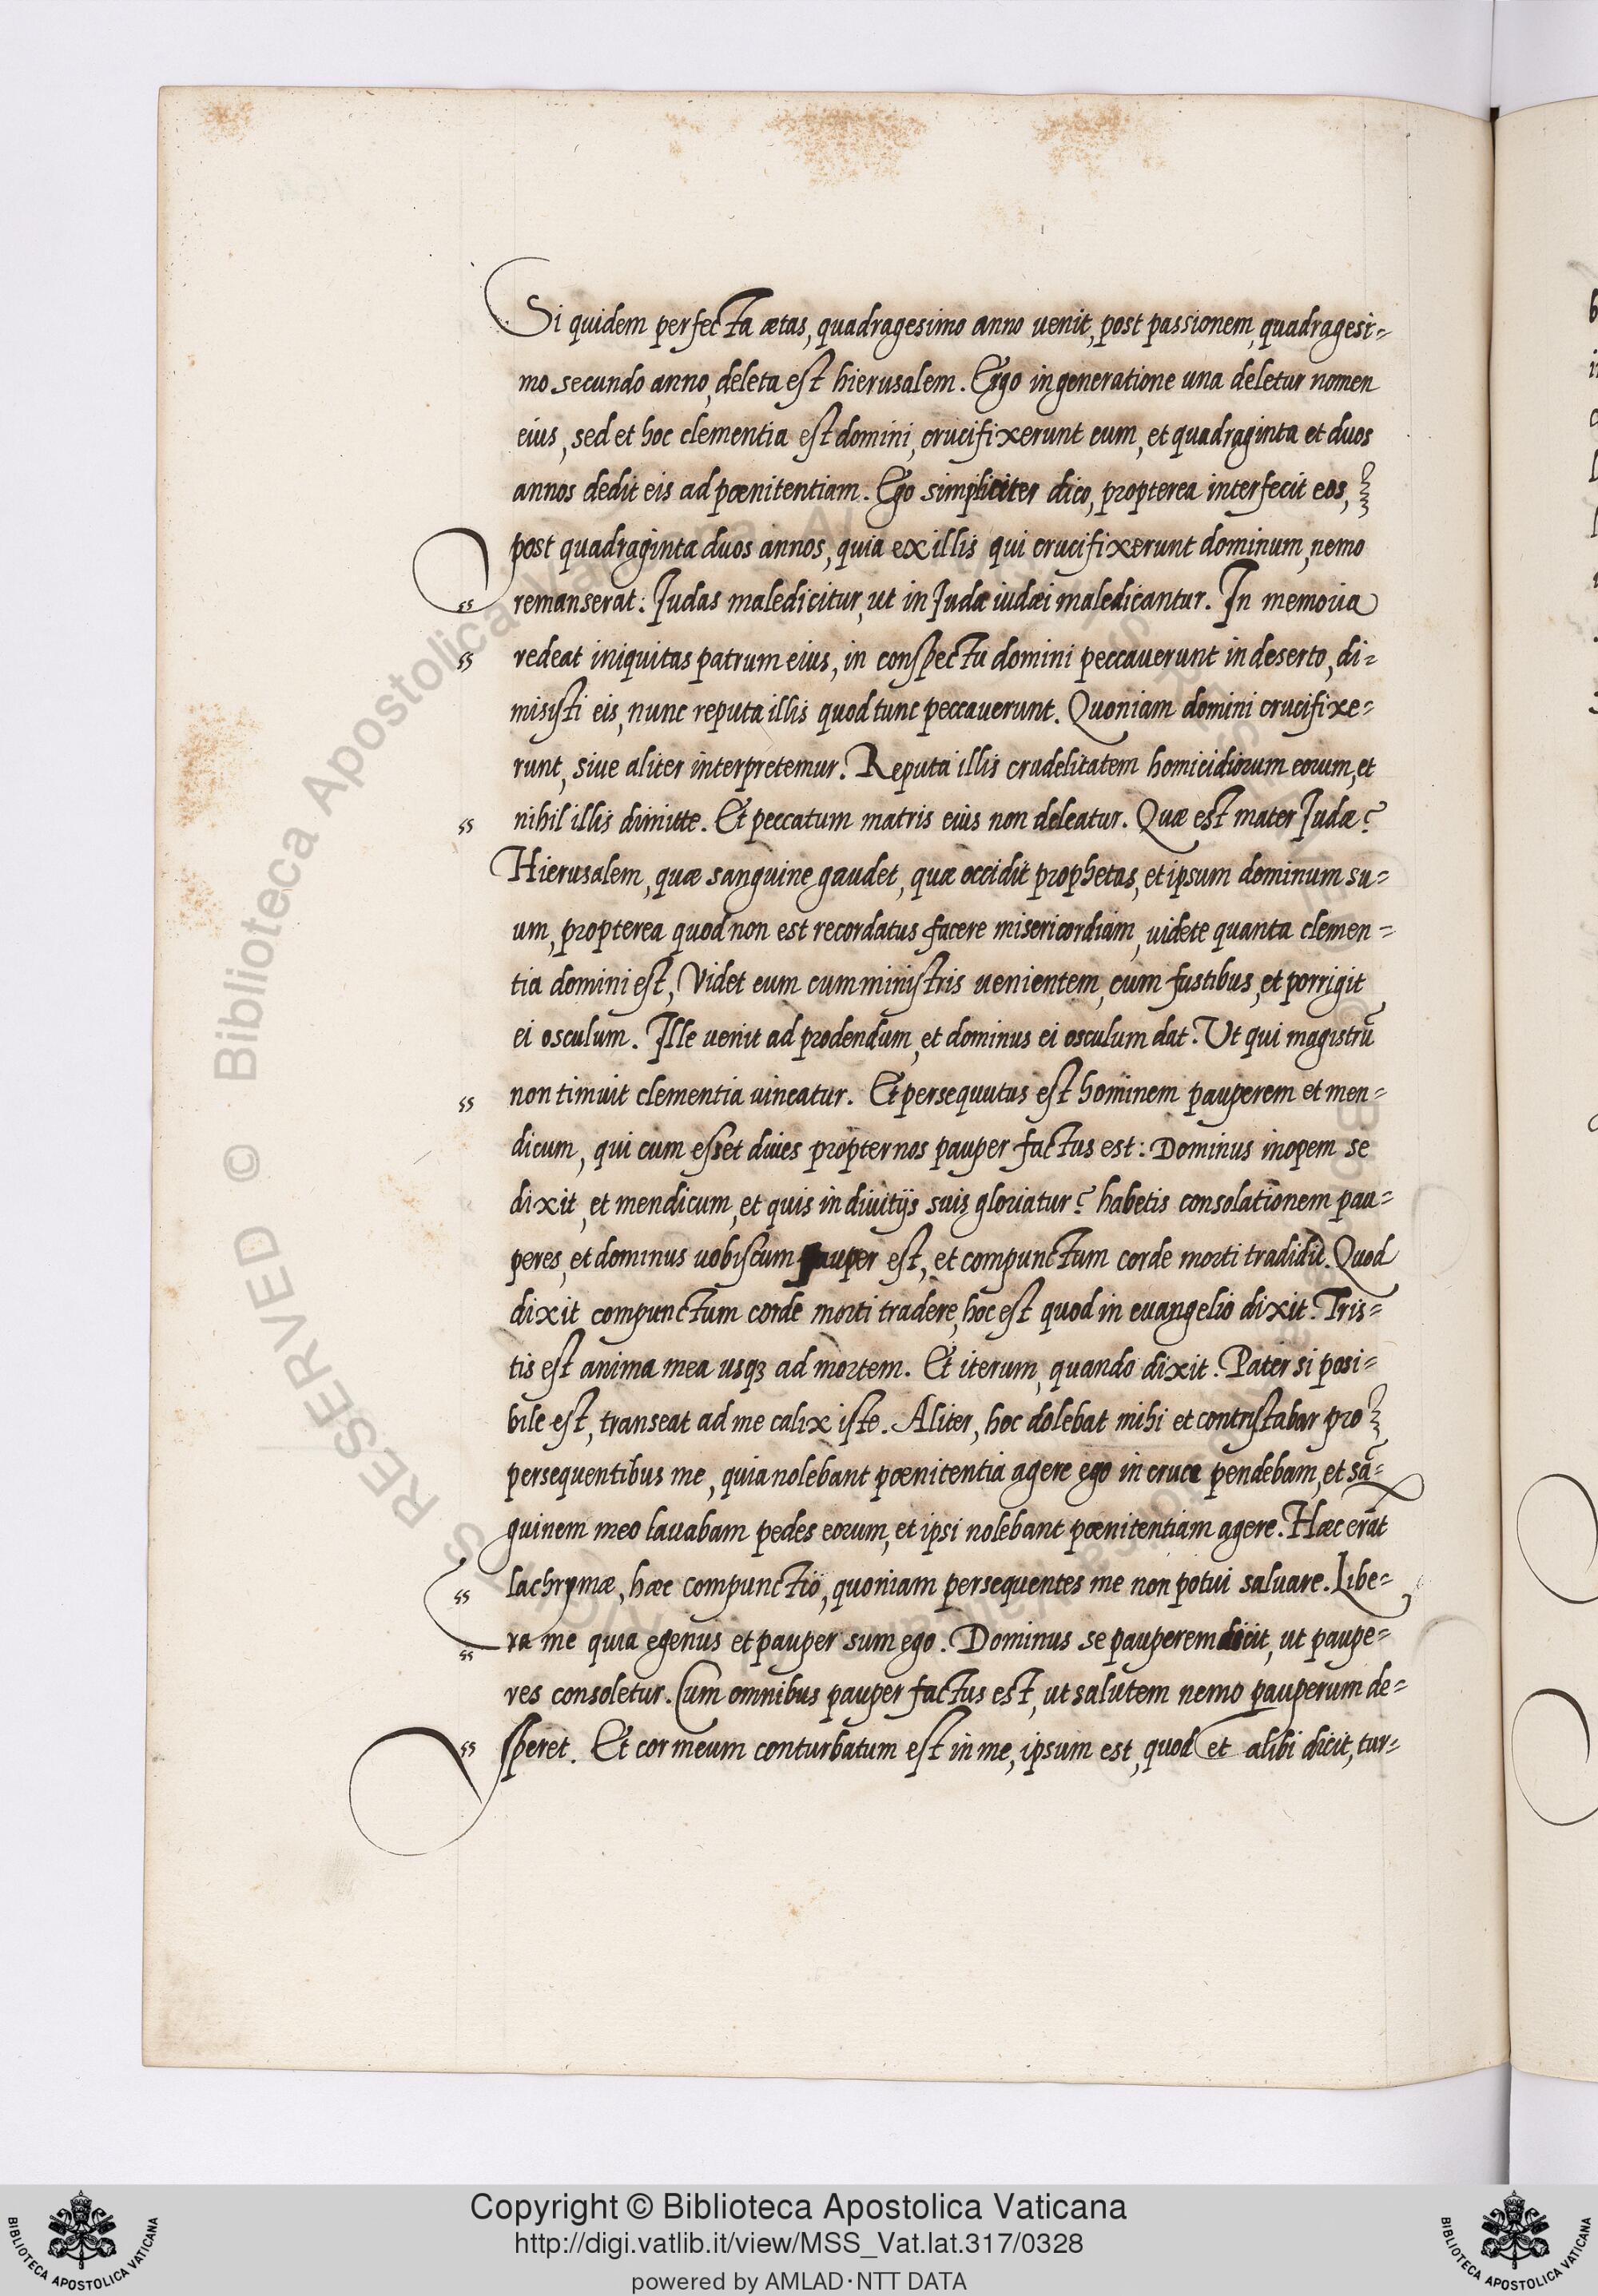 Si quidem perfecta ætas, quadragesimo anno uenit, post passionem, quadragesi=
mo secundo anno, deleta est hierusalem. Ergo in generatione una deletur nomen
eius, sed et hoc clementia est domini, crucifixerunt eum, et quadraginta et duos
annos dedit eis ad pœnitentiam. Ego simpliciter dico, propterea interfecit eos,
post quadraginta duos annos, quia ex illis qui crucifixerunt dominum, nemo
ss remanserat: Judas maledicitur, ut in Juda iudæi maledicantur. In memoria
ss redeat iniquitas patrum eius, in conspectu domini peccauerunt in deserto, di=
misisti eis, nunc reputa illis quod tunc peccauerunt. Quoniam domini crucifixe=
runt, siue aliter interpretemur. Reputa illis crudelitatem homicidiorum eorum, et
ss nihil illis dimitte. Et peccatum matris eius non deleatur. Quæ est mater Judæ?
Hierusalem, quæ sanguine gaudet, quæ occidit prophetas, et ipsum dominum su=
um, propterea quod non est recordatus facere misericordiam, uidete quanta clemen=
tia domini est, Videt eum cum ministris uenientem, cum fustibus, et porrigit
ei osculum. Ille uenit ad prodendum, et dominus ei osculum dat. Ut qui magistrũ
ss non timuit clementia uincatur. Et persequutus est hominem pauperem et men=
dicum, qui cum esset diues propter nos pauper factus est: Dominus inopem se
dixit, et mendicum, et quis in diuitijs suis gloriatur? habetis consolationem pau=
peres, et dominus uobiscum pauper est, et compunctum corde morti tradidit. Quod
dixit compunctum corde morti tradere, hoc est quod in euangelio dixit. Tris=
tis est anima mea usqꝫ ad mortem. Et iterum, quando dixit. Pater si posi=
bile est, transeat ad me calix iste. Aliter, hoc dolebat mihi et contristabar pro
persequentibus me, quia nolebant pœnitentia agere ego in cruce pendebam, et sã=
guinem meo lauabam pedes eorum, et ipsi nolebant pœnitentiam agere. Hæc erãt
ss lachrymæ, hæc compunctio, quoniam persequentes me non potui saluare. Libe=
ss ra me quia egenus et pauper sum ego. Dominus se pauperem dicit, ut paupe=
res consoletur. Cum omnibus pauper factus est, ut salutem nemo pauperum de=
ss speret. Et cor meum conturbatum est in me, ipsum est, quod et alibi dicit, tur=
© Biblioteca Apostolica Vaticana
RESERVED
Copyright © Biblioteca Apostolica Vaticana
http://digi.vatlib.it/view/MSS_Vat.lat.317/0328
powered by AMLAD·NTT DATA
BIBLIOTECA APOSTOLICA VATICANA
BIBLIOTECA APOSTOLICA VATICANA